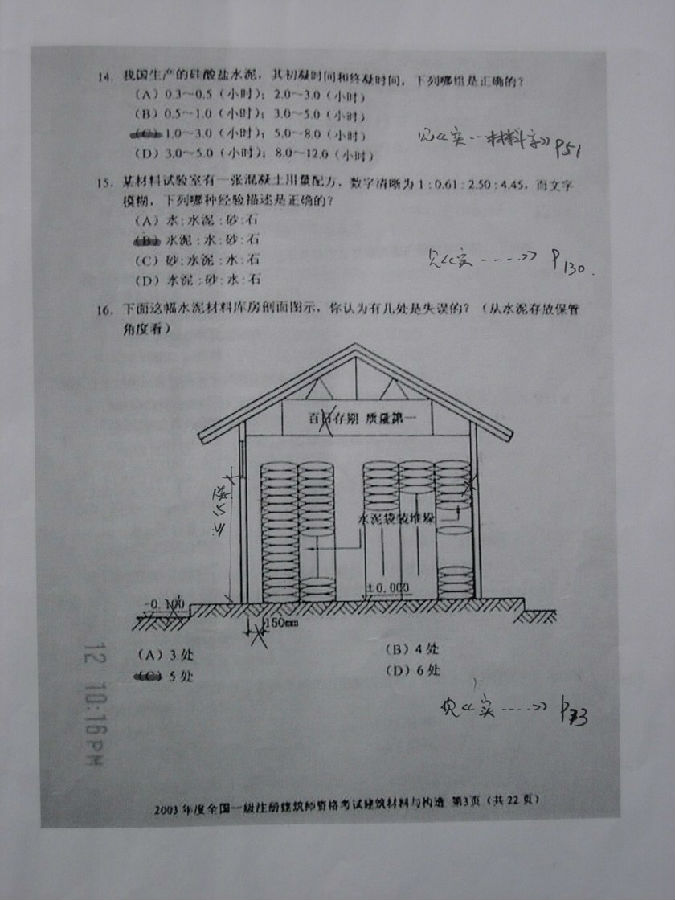 14. 我国生产的硅酸盐水泥，其初凝时间和终凝时间，下列哪组是正确的？
(A) 0.3～0.5（小时）；2.0～3.0（小时）
(B) 0.5～1.0（小时）；3.0～5.0（小时）
(C) 1.0～3.0（小时）；5.0～8.0（小时）
(D) 3.0～5.0（小时）；8.0～12.0（小时）
见《实…材料字》P51
15. 某材料试验室有一张混凝土用量配方，数字清晰为 1：0.61：2.50：4.45，而文字
模糊，下列哪种经验描述是正确的？
(A) 水：水泥：砂：石
(B) 水泥：水：砂：石
(C) 砂：水泥：水：石
(D) 水泥：砂：水：石
见《实……》P130.
16. 下面这幅水泥材料库房剖面图示，你认为有几处是失误的？（从水泥存放保管
角度看）
百日存期 质量第一
水泥袋装堆垛
±0.000
-0.100
150mm
(A) 3 处
(B) 4 处
(C) 5 处
(D) 6 处
见《实……》P33
12 10:16PM
2003 年度全国一级注册建筑师资格考试建筑材料与构造 第3页（共 22 页）